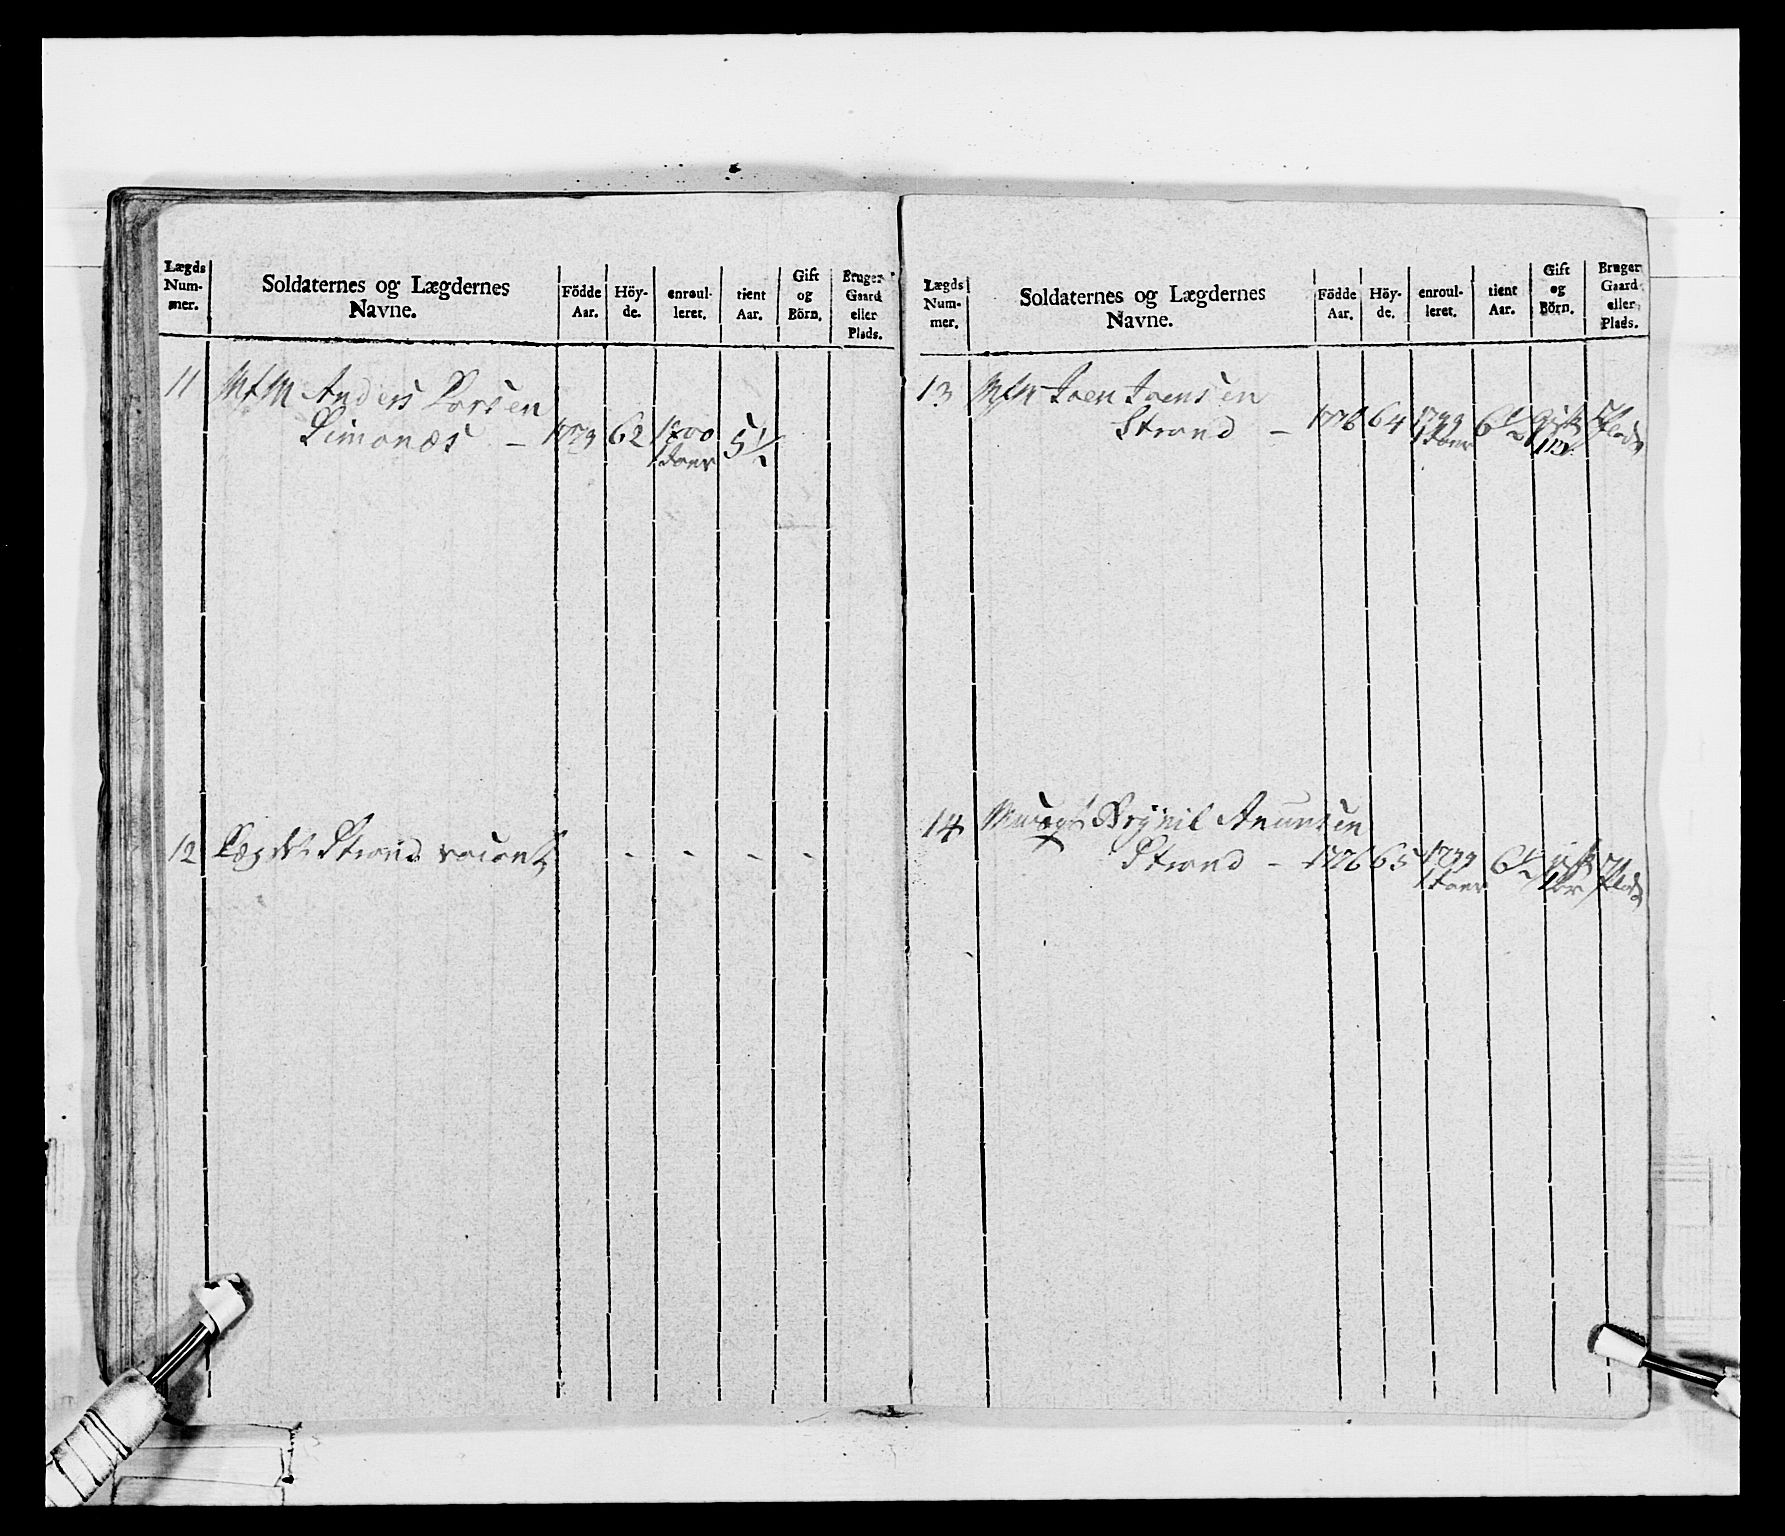 Lægds Num- mer.
Soldaternes og Lægdernes Navne.
Födde Aar.
Höy- de.
enroul- leret.
tient Aar.
Gift og Börn.
Bruger Gaard eller Plads.
11 Anders Larsen
Simonæs – 1773 62 1800 5½
12 Lægdet Strand vacant - - - -
Lægds Num- mer.
Soldaternes og Lægdernes Navne.
Födde Aar.
Höy- de.
enroul- leret.
tient Aar.
Gift og Börn.
Bruger Gaard eller Plads.
13 Joen Joensen
Strand – 1776 64 1799 6½ Gift Plads
14 Brynil Amunsen
Strand – 1776 65 1799 6½ gift Plads